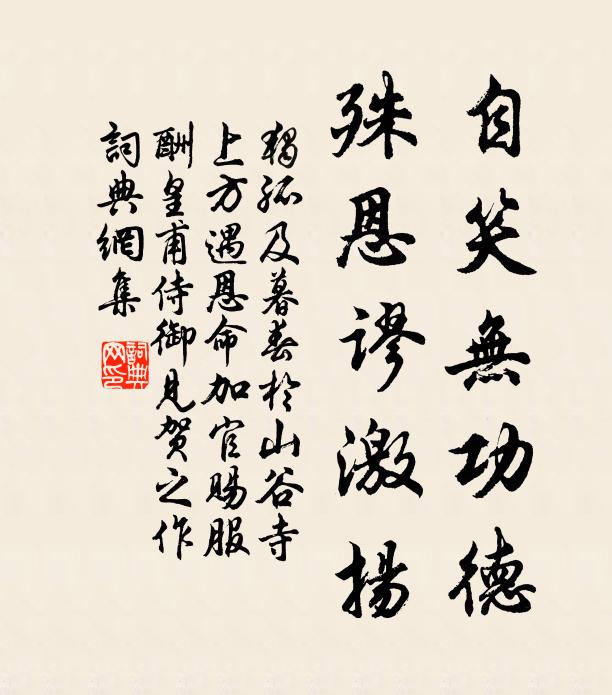 自笑無功德
殊恩謬激揚
獨孤及暮春於山谷寺
上方遇恩命加官賜服
酬皇甫侍御見賀之作
詞典網集
詞典
网印